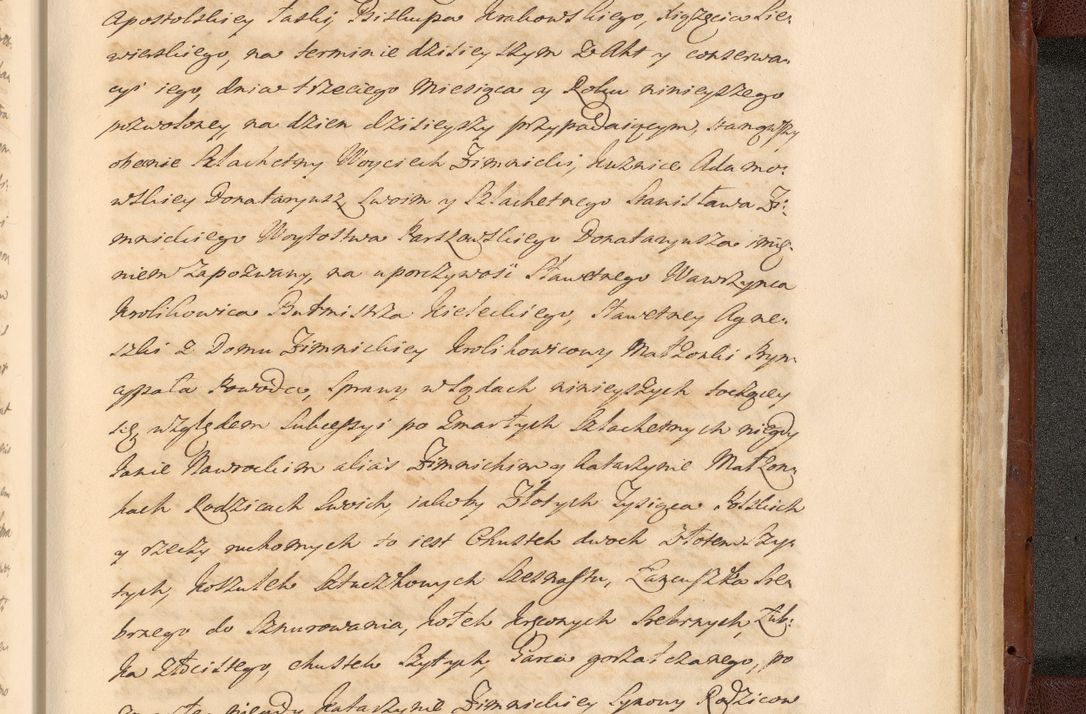 Apostolskiey Łaski Biskupa Krakowskiego, Xiążęcia Sie-
wierskiego, na terminie dzisieyszym z Akt y conserwa-
cyi iego, dnia trzeciego Miesiąca y Roku ninieyszego
pozwoloney na dzien dzisieyszy przypadaiącym, stanąwszy
obecnie Szlachetny Woyciech Zimnicki, Kuźnice Adamo-
wskiey Donataryusz swoim y Szlachetnego Stanisława Zi-
mnickiego Woytostwa Karszowskiego Donataryusza imie-
niem zapozwany, na uporczywość Sławetnego Wawrzynca
Krolikowica Burmistrza Kieleckiego, Sławetney Agnie-
szki z Domu Zimnickiey Krolikowicowy Małżonki Pryn-
cypała Powoda, Sprawy w Sądach ninieyszych toczącey
się, względem Sukcessyi po zmarłych Szlachetnych niegdy
Janie Nawrockim alias Zimnickim y Katarzynie Małżon-
kach Rodzicach swoich, iakoby Złotych Tysiąca Polskich
y rzeczy ruchomych to iest Chustek dwoch złotem szy-
tych, Koszulek Sztuczkowych szesnastu, Łańcuszka sre-
brnego do sznurowania, Kołek kręconych srebrnych,
ka złocistego, chustek szytych, Garca gorzałczanego, po
niegdy Katarzynie Zimnickiey Synowy Rodzicow